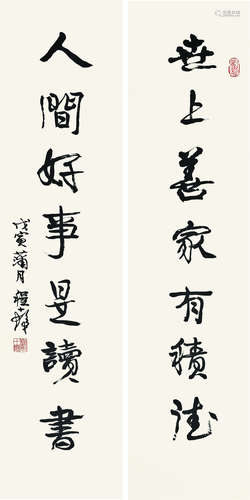 世上善家有积德
人間好事是讀書
戊寅蒲月程峰